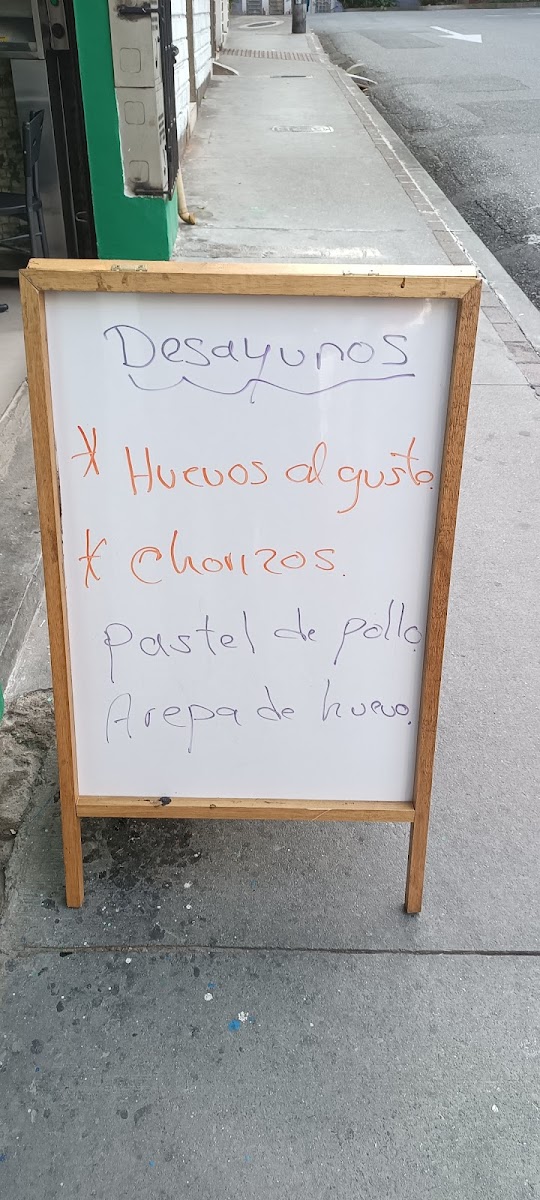 Desayunos
* Huevos al gusto.
* Chorizos.
Pastel de pollo.
Arepa de huevo.